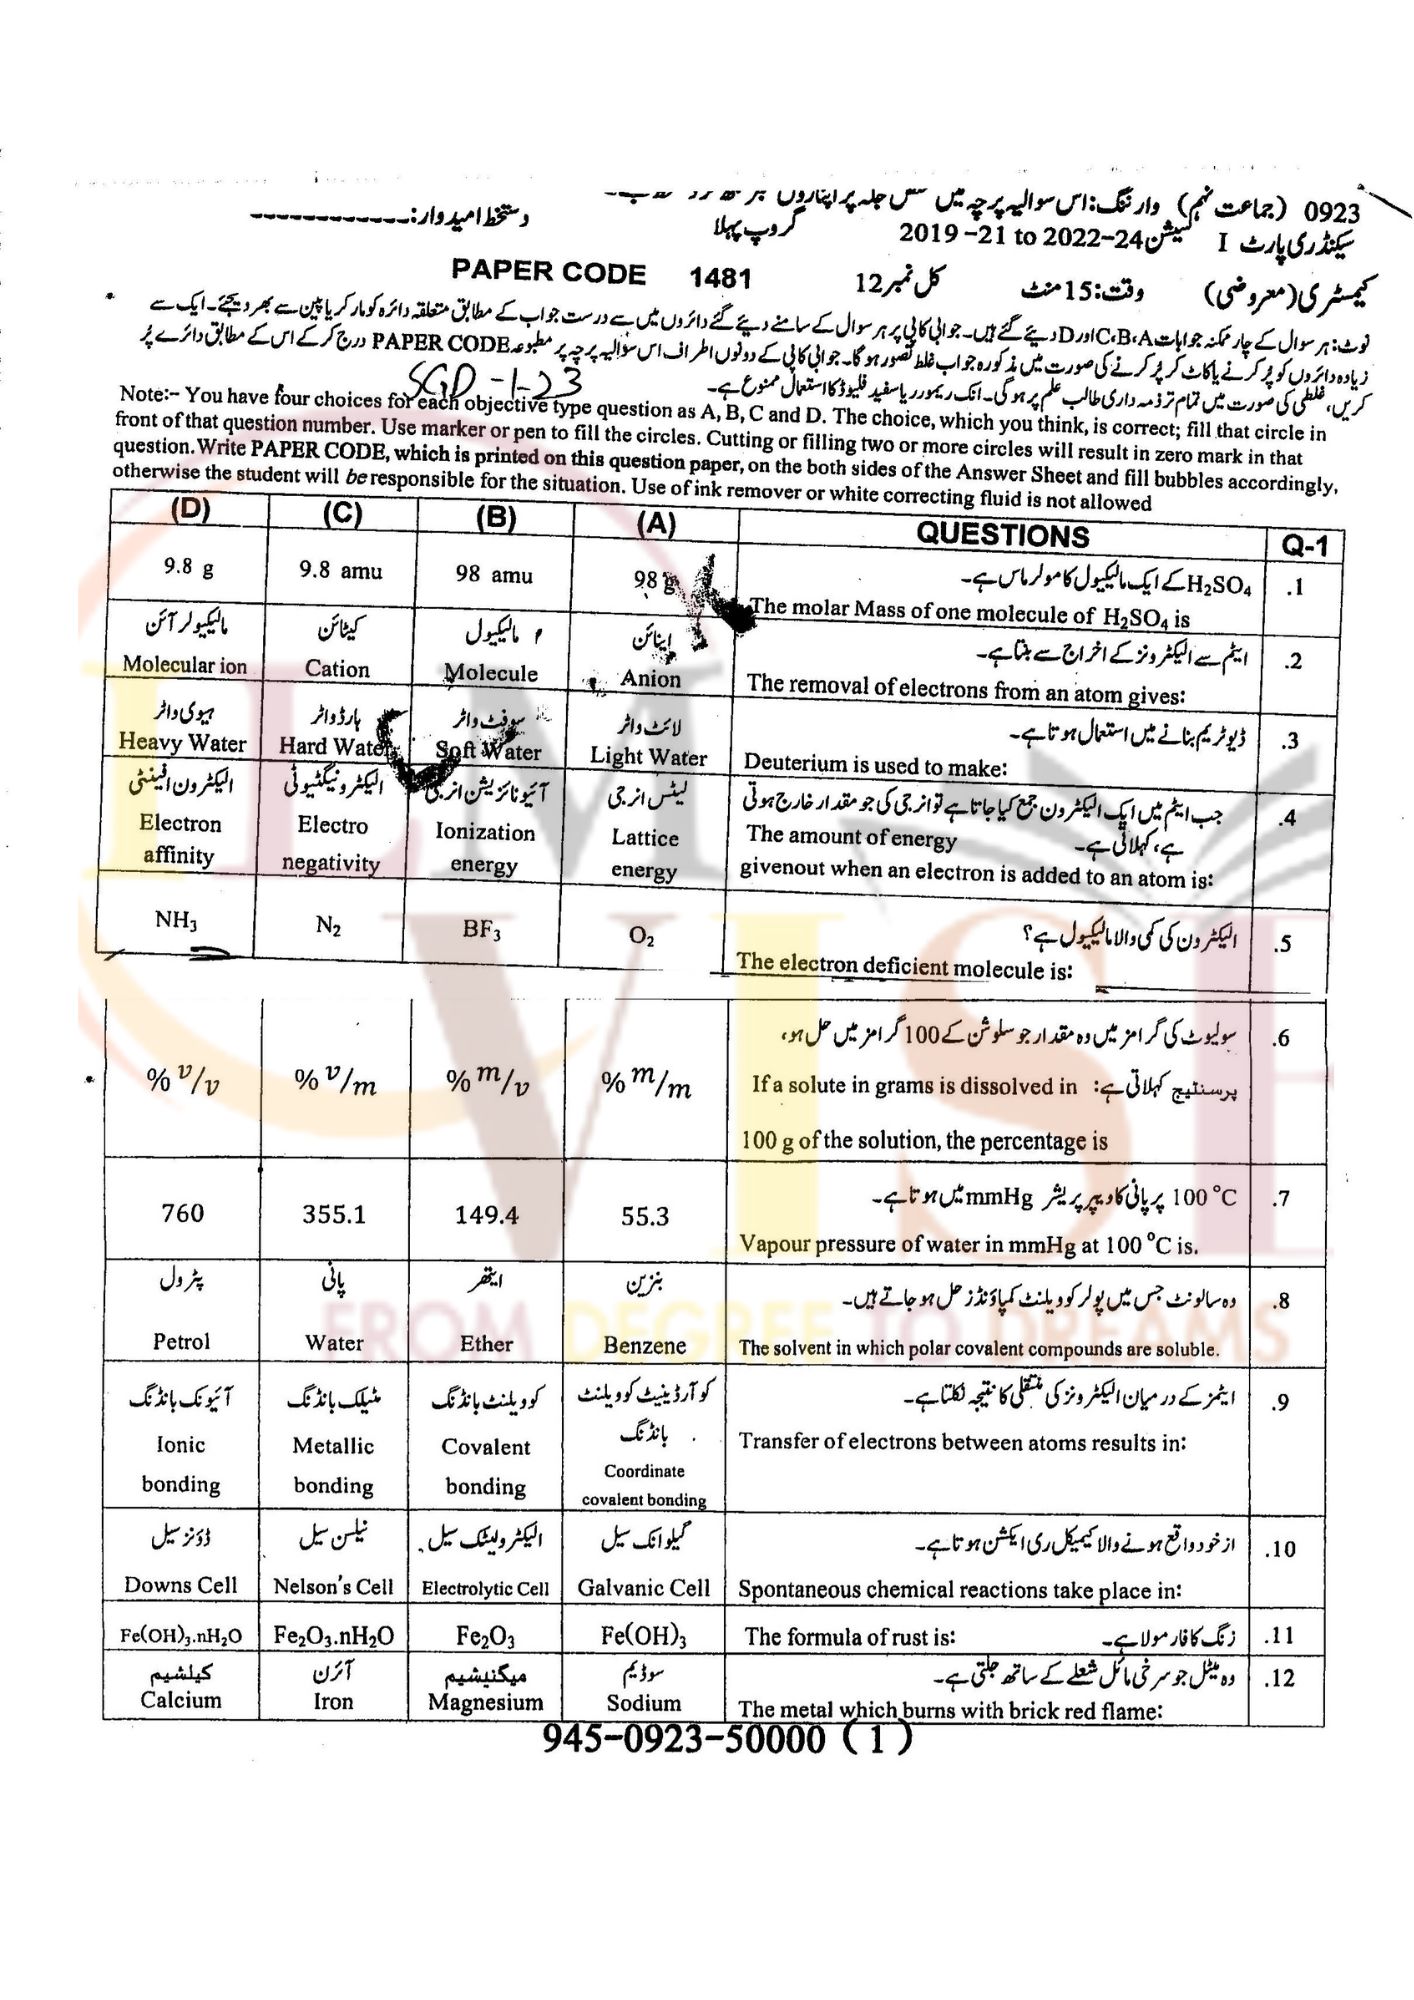 0923 (جماعت نہم) وارننگ: اس سوالیہ پرچہ میں
دستخط امیدوار:------------
سیکنڈری پارٹ I سیشن 2019-21 to 2022-24 گروپ پہلا
کیمسٹری (معروضی) وقت: 15 منٹ کل نمبر 12 PAPER CODE 1481
نوٹ: ہر سوال کے چار ممکنہ جوابات C،B،A اور D دیئے گئے ہیں۔ جوابی کاپی پر ہر سوال کے سامنے دیئے گئے دائروں میں سے درست جواب کے مطابق متعلقہ دائرہ کو مارکر یا پین سے بھر دیجئے۔ ایک سے
زیادہ دائروں کو پُر کرنے یا کاٹ کر پُر کرنے کی صورت میں مذکورہ جواب غلط تصور ہو گا۔ جوابی کاپی کے دونوں اطراف اس سوالیہ پرچہ پر مطبوعہ PAPER CODE درج کر کے اس کے مطابق دائرے پُر
کریں، غلطی کی صورت میں تمام تر ذمہ داری طالب علم پر ہو گی۔ انک ریمور یا سفید فلیوڈ کا استعمال ممنوع ہے۔
SGD-1-23
Note:- You have four choices for each objective type question as A, B, C and D. The choice, which you think, is correct; fill that circle in
front of that question number. Use marker or pen to fill the circles. Cutting or filling two or more circles will result in zero mark in that
question. Write PAPER CODE, which is printed on this question paper, on the both sides of the Answer Sheet and fill bubbles accordingly,
otherwise the student will be responsible for the situation. Use of ink remover or white correcting fluid is not allowed
(D) (C) (B) (A) QUESTIONS Q-1
H₂SO₄ کے ایک مالیکیول کا مولر ماس ہے۔ .1
9.8 g 9.8 amu 98 amu 98 g
The molar Mass of one molecule of H₂SO₄ is
ایٹم سے الیکٹرونز کے اخراج سے بنتا ہے۔ .2
اینائن مالیکیول کیٹائن مالیکیولر آئن
Molecular ion Cation Molecule Anion The removal of electrons from an atom gives:
ڈیوٹریم بنانے میں استعمال ہوتا ہے۔ .3
لائٹ واٹر سوفٹ واٹر ہارڈ واٹر ہیوی واٹر
Heavy Water Hard Water Soft Water Light Water Deuterium is used to make:
جب ایٹم میں ایک الیکٹرون جمع کیا جاتا ہے تو انرجی کی جو مقدار خارج ہوتی .4
لیٹس انرجی آئیونائزیشن انرجی الیکٹرونیگٹیوٹی الیکٹرون افینٹی
Electron Electro Ionization Lattice The amount of energy ہے، کہلاتی ہے۔
affinity negativity energy energy givenout when an electron is added to an atom is:
الیکٹرون کی کمی والا مالیکیول ہے؟ .5
NH₃ N₂ BF₃ O₂
The electron deficient molecule is:
سولیوٹ کی گرامز میں وہ مقدار جو سلوشن کے 100 گرامز میں حل ہو، .6
% v/v % v/m % m/v % m/m If a solute in grams is dissolved in پرسنٹیج کہلاتی ہے:
100 g of the solution, the percentage is
100 °C پر پانی کا ویپر پریشر mmHg میں ہوتا ہے۔ .7
760 355.1 149.4 55.3
Vapour pressure of water in mmHg at 100 °C is.
وہ سالونٹ جس میں پولر کوویلنٹ کمپاؤنڈز حل ہو جاتے ہیں۔ .8
بنزین ایتھر پانی پٹرول
FROM DEGREE TO DREAMS
Petrol Water Ether Benzene The solvent in which polar covalent compounds are soluble.
ایٹمز کے درمیان الیکٹرونز کی منتقلی کا نتیجہ نکلتا ہے۔ .9
کوآرڈینیٹ کوویلنٹ بانڈنگ کوویلنٹ بانڈنگ میٹلک بانڈنگ آئیونک بانڈنگ
Ionic Metallic Covalent Transfer of electrons between atoms results in:
bonding bonding bonding Coordinate
covalent bonding
ازخود واقع ہونے والا کیمیکل ری ایکشن ہوتا ہے۔ .10
گیلوانک سیل الیکٹرولیٹک سیل نیلسن سیل ڈاؤنز سیل
Downs Cell Nelson's Cell Electrolytic Cell Galvanic Cell Spontaneous chemical reactions take place in:
Fe(OH)₃.nH₂O Fe₂O₃.nH₂O Fe₂O₃ Fe(OH)₃ The formula of rust is: زنگ کا فارمولا ہے۔ .11
وہ میٹل جو سرخی مائل شعلے کے ساتھ جلتی ہے۔ .12
سوڈیم میگنیشیم آئرن کیلشیم
Calcium Iron Magnesium Sodium The metal which burns with brick red flame:
945-0923-50000 (1)